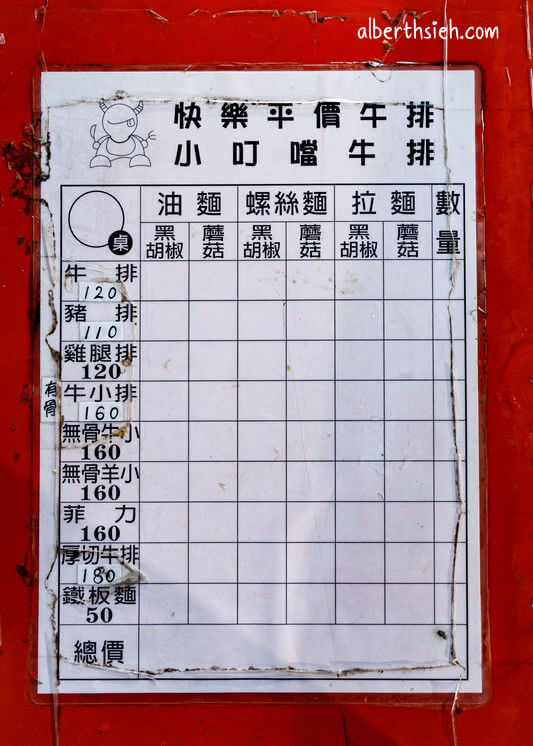 alberthsieh.com
快樂平價牛排
小叮噹牛排
桌
油麵 螺絲麵 拉麵 數量
黑胡椒 蘑菇 黑胡椒 蘑菇 黑胡椒 蘑菇
牛排
120
豬排
110
雞腿排
120
有骨
牛小排
160
無骨牛小
160
無骨羊小
160
菲力
160
厚切牛排
180
鐵板麵
50
總價